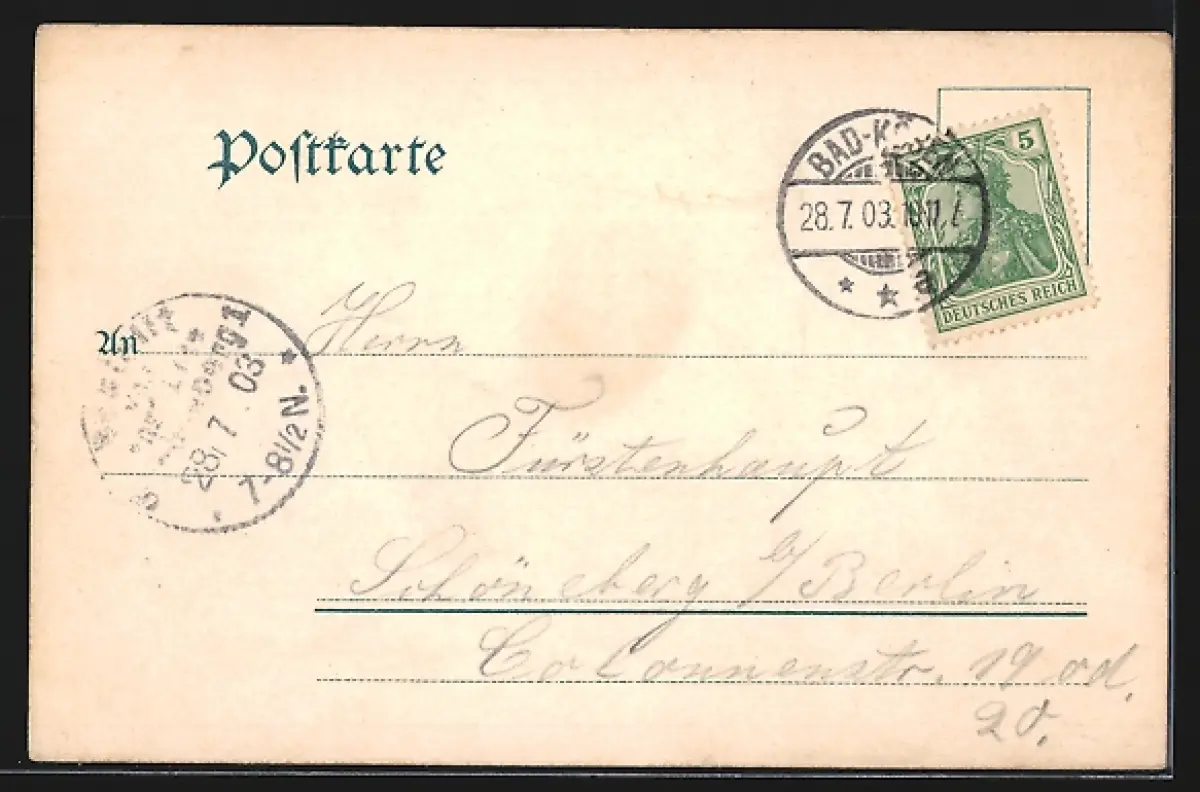 Postkarte
BAD-KÖSEN
28.7.03. 10-11
5
DEUTSCHES REICH
An
28 7 03
7-8½N.
Herrn
Fürstenhaupt
Schöneberg b/Berlin
Colonnenstr. 19 od.
20.